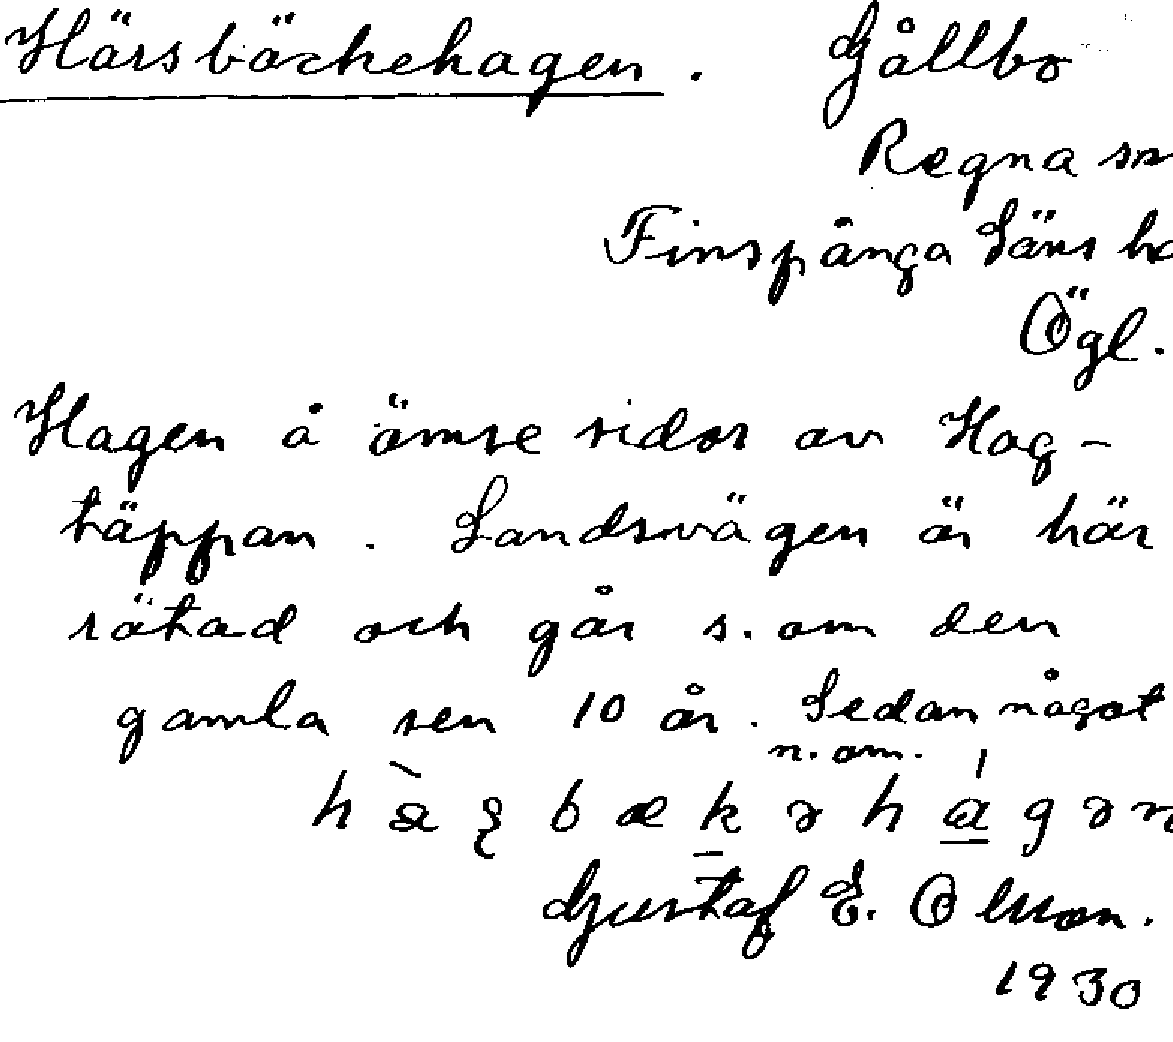 Härsbäckehagen. Gållbo
Regna sn
Finspånga läns hd
Ögl.
Hagen å ömse sidor av Hag-
täppan. Landsvägen är här
rätad och går s. om den
gamla sen 10 år. Sedan något
n. om.
Gustaf E. Olsson.
1930